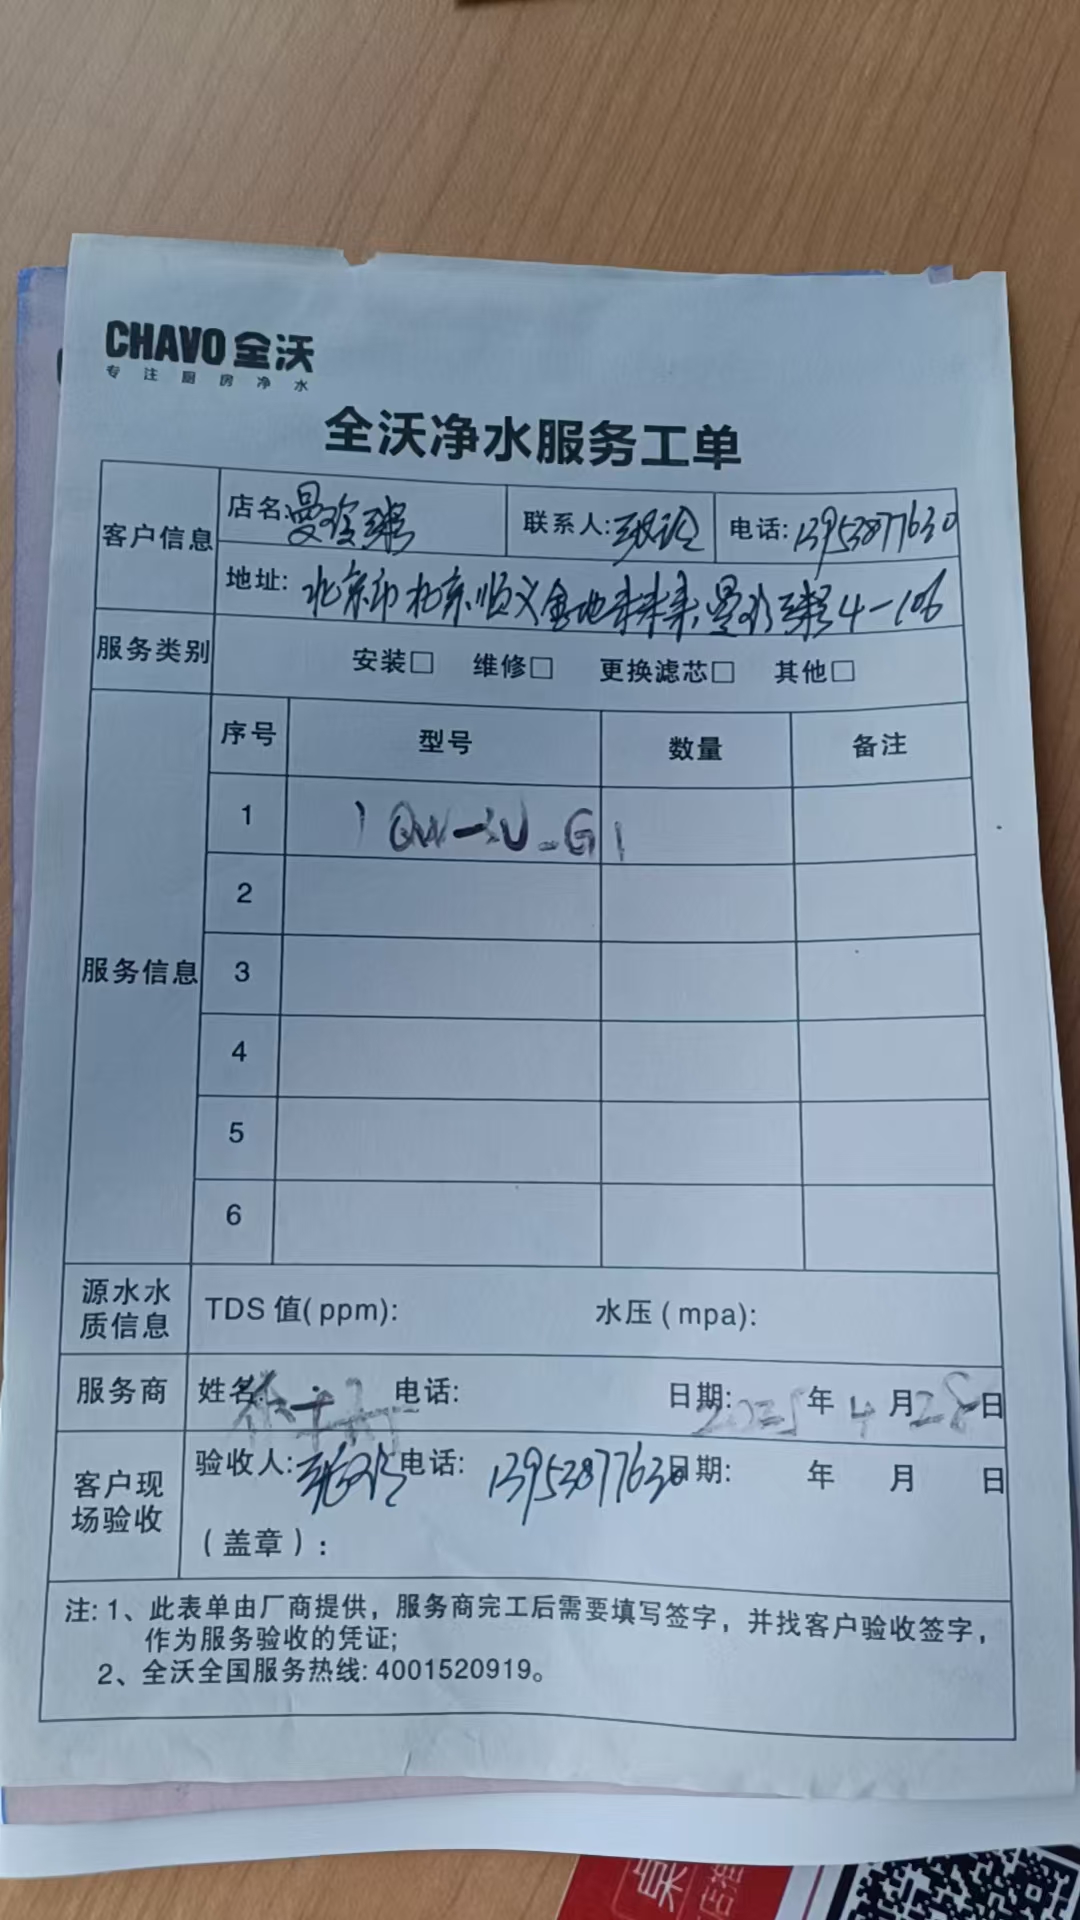 CHAVO 全沃
专注厨房净水
全沃净水服务工单
客户信息 店名:曼玲粥 联系人:张玲 电话:13953877630
地址:北京市北京顺义金地未未来曼玲粥4-106
服务类别 安装□ 维修□ 更换滤芯□ 其他□
服务信息 序号 型号 数量 备注
1
2
3
4
5
6
源水水质信息 TDS 值(ppm): 水压(mpa):
服务商 姓名: 电话: 日期:2025年4月28日
客户现场验收 验收人:张玲 电话:13953877630 日期: 年 月 日
(盖章):
注:1、此表单由厂商提供,服务商完工后需要填写签字,并找客户验收签字,
作为服务验收的凭证;
2、全沃全国服务热线:4001520919。